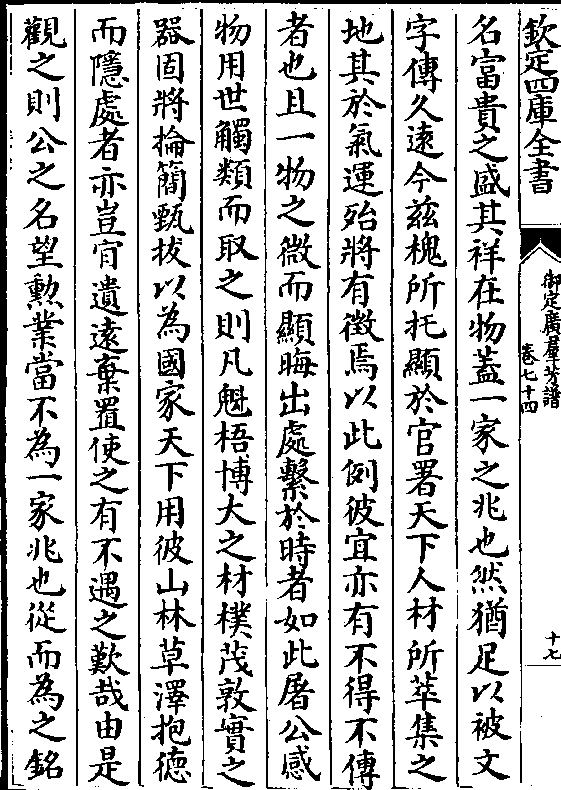 欽定四庫全書
御定廣羣芳譜
卷七十四
十七
名富貴之盛其祥在物蓋一家之兆也然猶足以被文
字傳久遠今兹槐所托顯於官署天下人材所萃集之
地其於氣運殆將有徵焉以此例彼宜亦有不得不傳
者也且一物之微而顯晦出處繫於時者如此屠公感
物用世觸類而取之則凡魁梧博大之材樸茂敦實之
器固將掄簡甄拔以為國家天下用彼山林草澤抱德
而隱處者亦豈肎遺遠棄置使之有不遇之歎哉由是
觀之則公之名望勲業當不為一家兆也從而為之銘